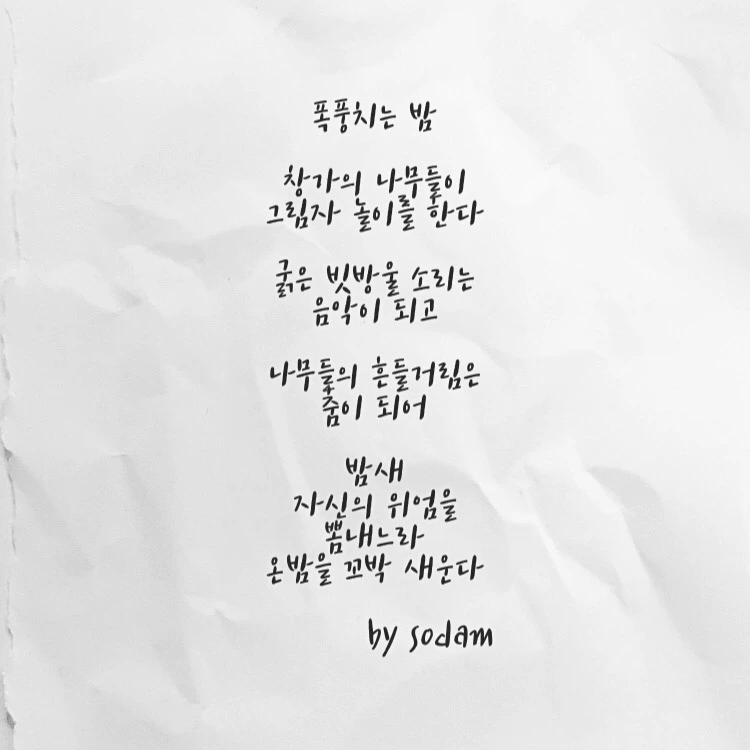 폭풍치는 밤
창가의 나무들이
그림자 놀이를 한다
굵은 빗방울 소리는
음악이 되고
나무들의 흔들거림은
춤이 되어
밤새
자신의 위엄을
뽐내느라
온밤을 꼬박 새운다
by sodam